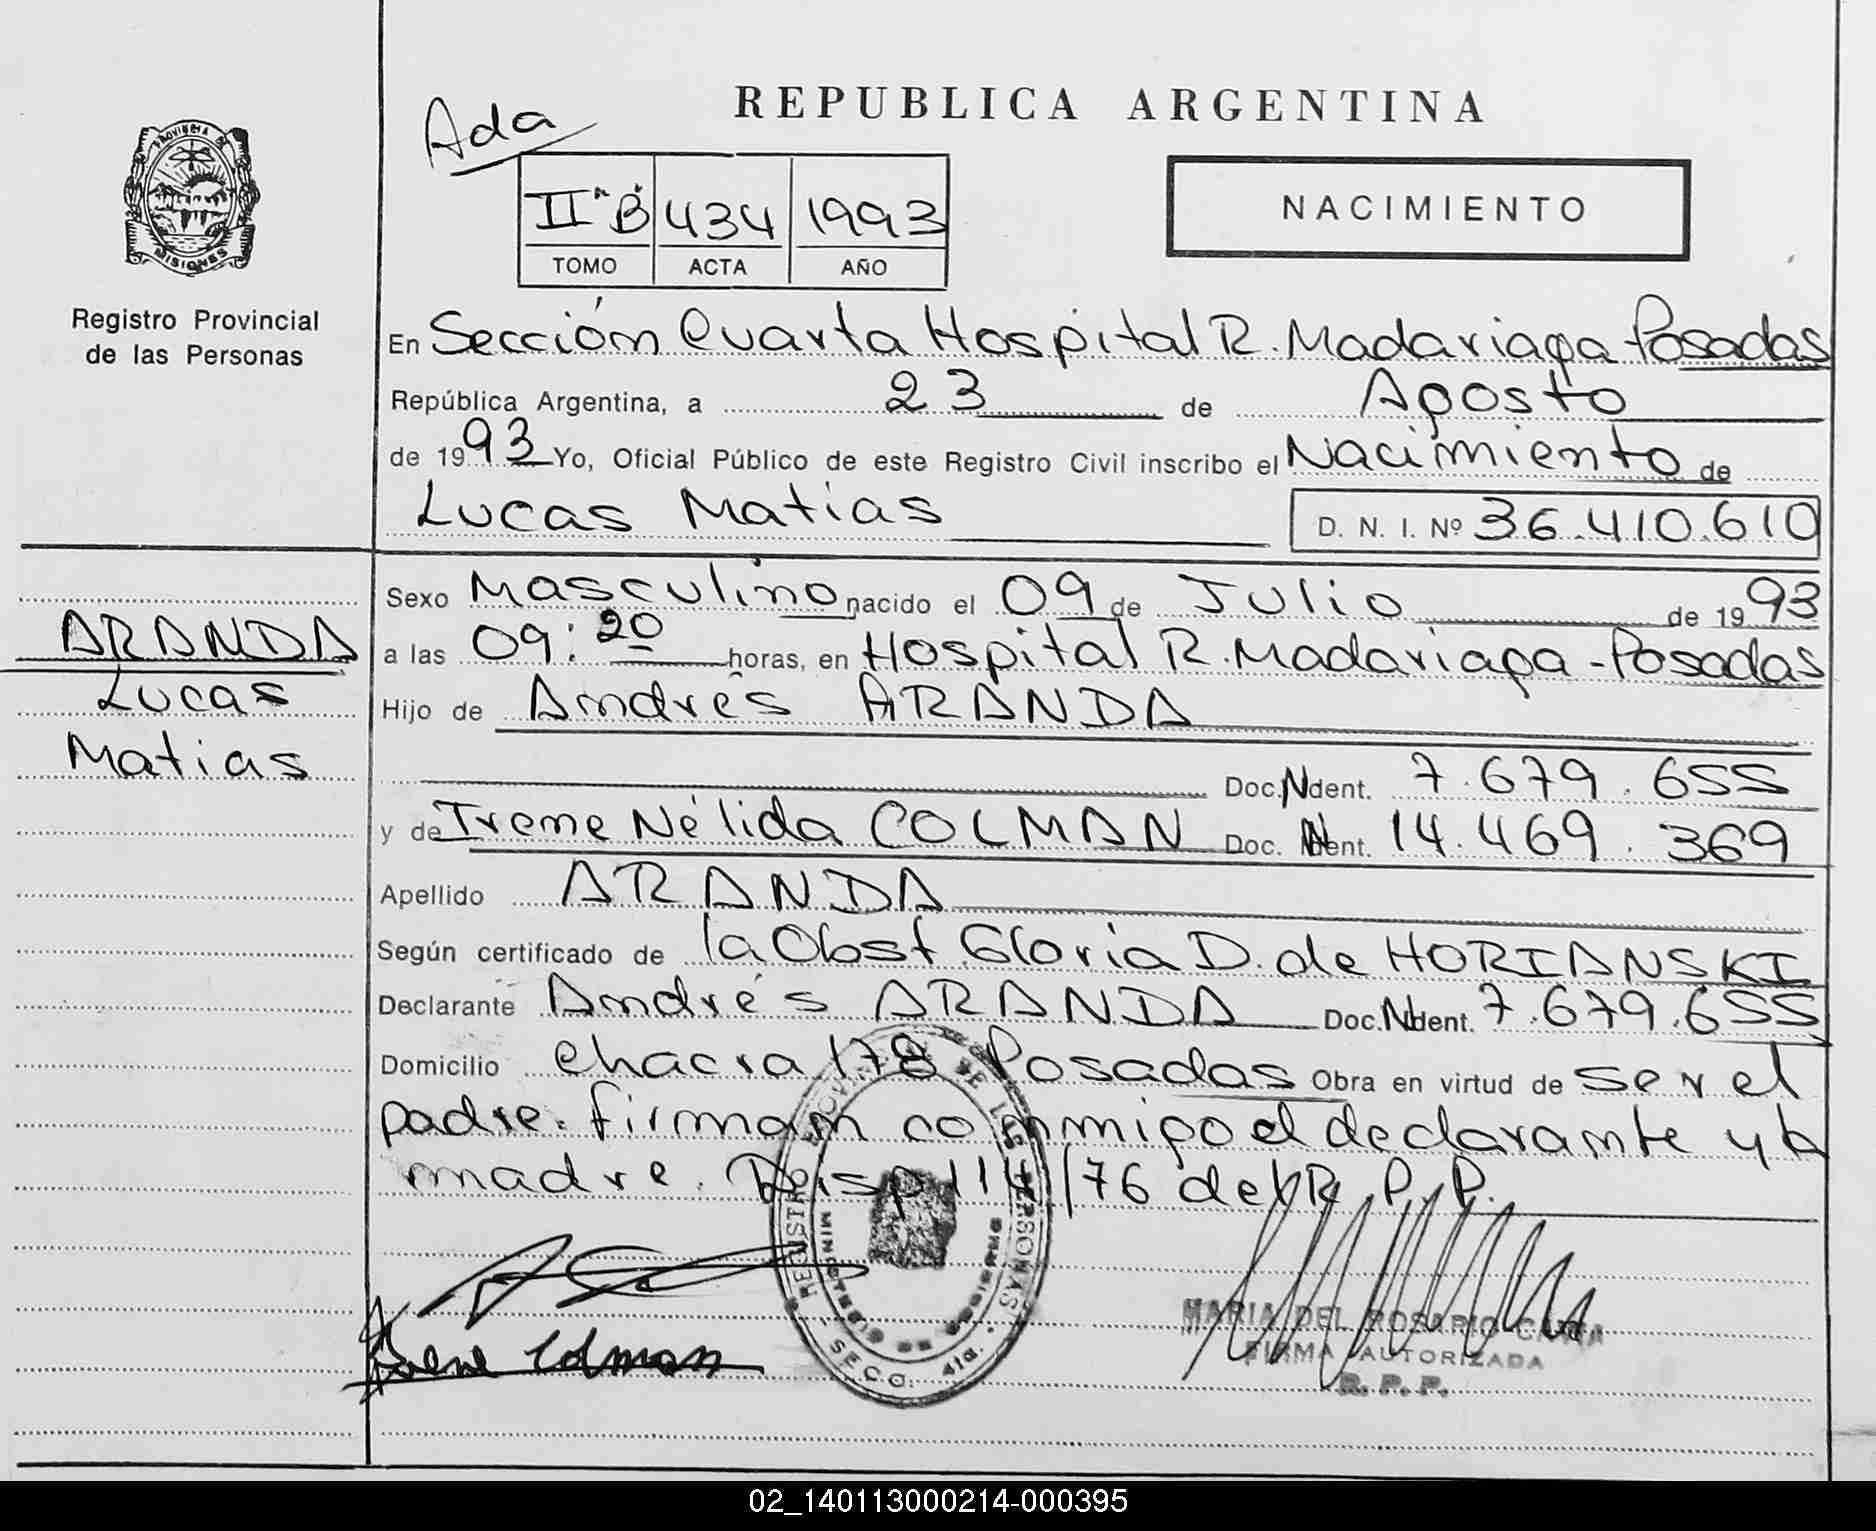 REPUBLICA ARGENTINA
Ada
IIº B 434 1993
TOMO ACTA AÑO
NACIMIENTO
PROVINCIA DE
MISIONES
Registro Provincial
de las Personas
En Sección Cuarta Hospital R. Madariaga Posadas
República Argentina, a 23 de Agosto
de 1993 Yo, Oficial Público de este Registro Civil inscribo el Nacimiento de
Lucas Matias D. N. I. Nº 36.410.610
ARANDA
Lucas
Matias
Sexo Masculino nacido el 09 de Julio de 1993
a las 09:20 horas, en Hospital R. Madariaga - Posadas
Hijo de Andrés ARANDA
Doc. Ident. 7.679.655
y de Irene Nélida COLMAN Doc. Ident. 14.469.369
Apellido ARANDA
Según certificado de la Obst Gloria D. de HORIANSKI
Declarante Andrés ARANDA Doc. Ident. 7.679.655
Domicilio chacra 178 Posadas Obra en virtud de ser el
padre. firman conmigo el declarante y la
madre. Disp 114/76 del R. P. P.
REGISTRO PROVINCIAL DE LAS PERSONAS
MINISTERIO DE GOBIERNO
SECC. 4ta.
Irene Colman
MARIA DEL ROSARIO
FIRMA AUTORIZADA
R. P. P.
02_140113000214-000395